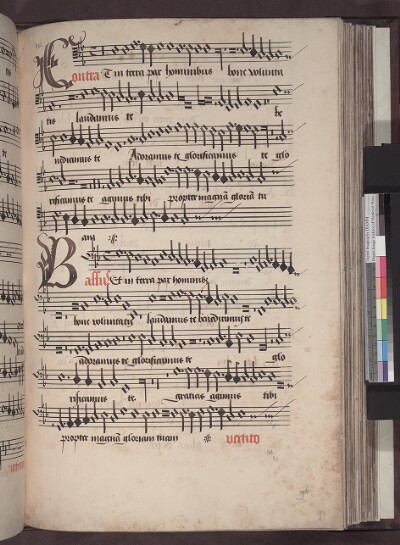 Contra Et in terra pax hominibus bone volunta
tis laudamus te be
nedicimus te Adoramus te glorificamus te glo
rificamus te agimus tibi propter magnā gloriā tu
am
Bassus Et in terra pax hominibus
bone voluntatis laudamus te benedicimus te
adoramus te glorificamus te glo
rificamus te gratias agimus tibi
propter magnam gloriam tuam vertito